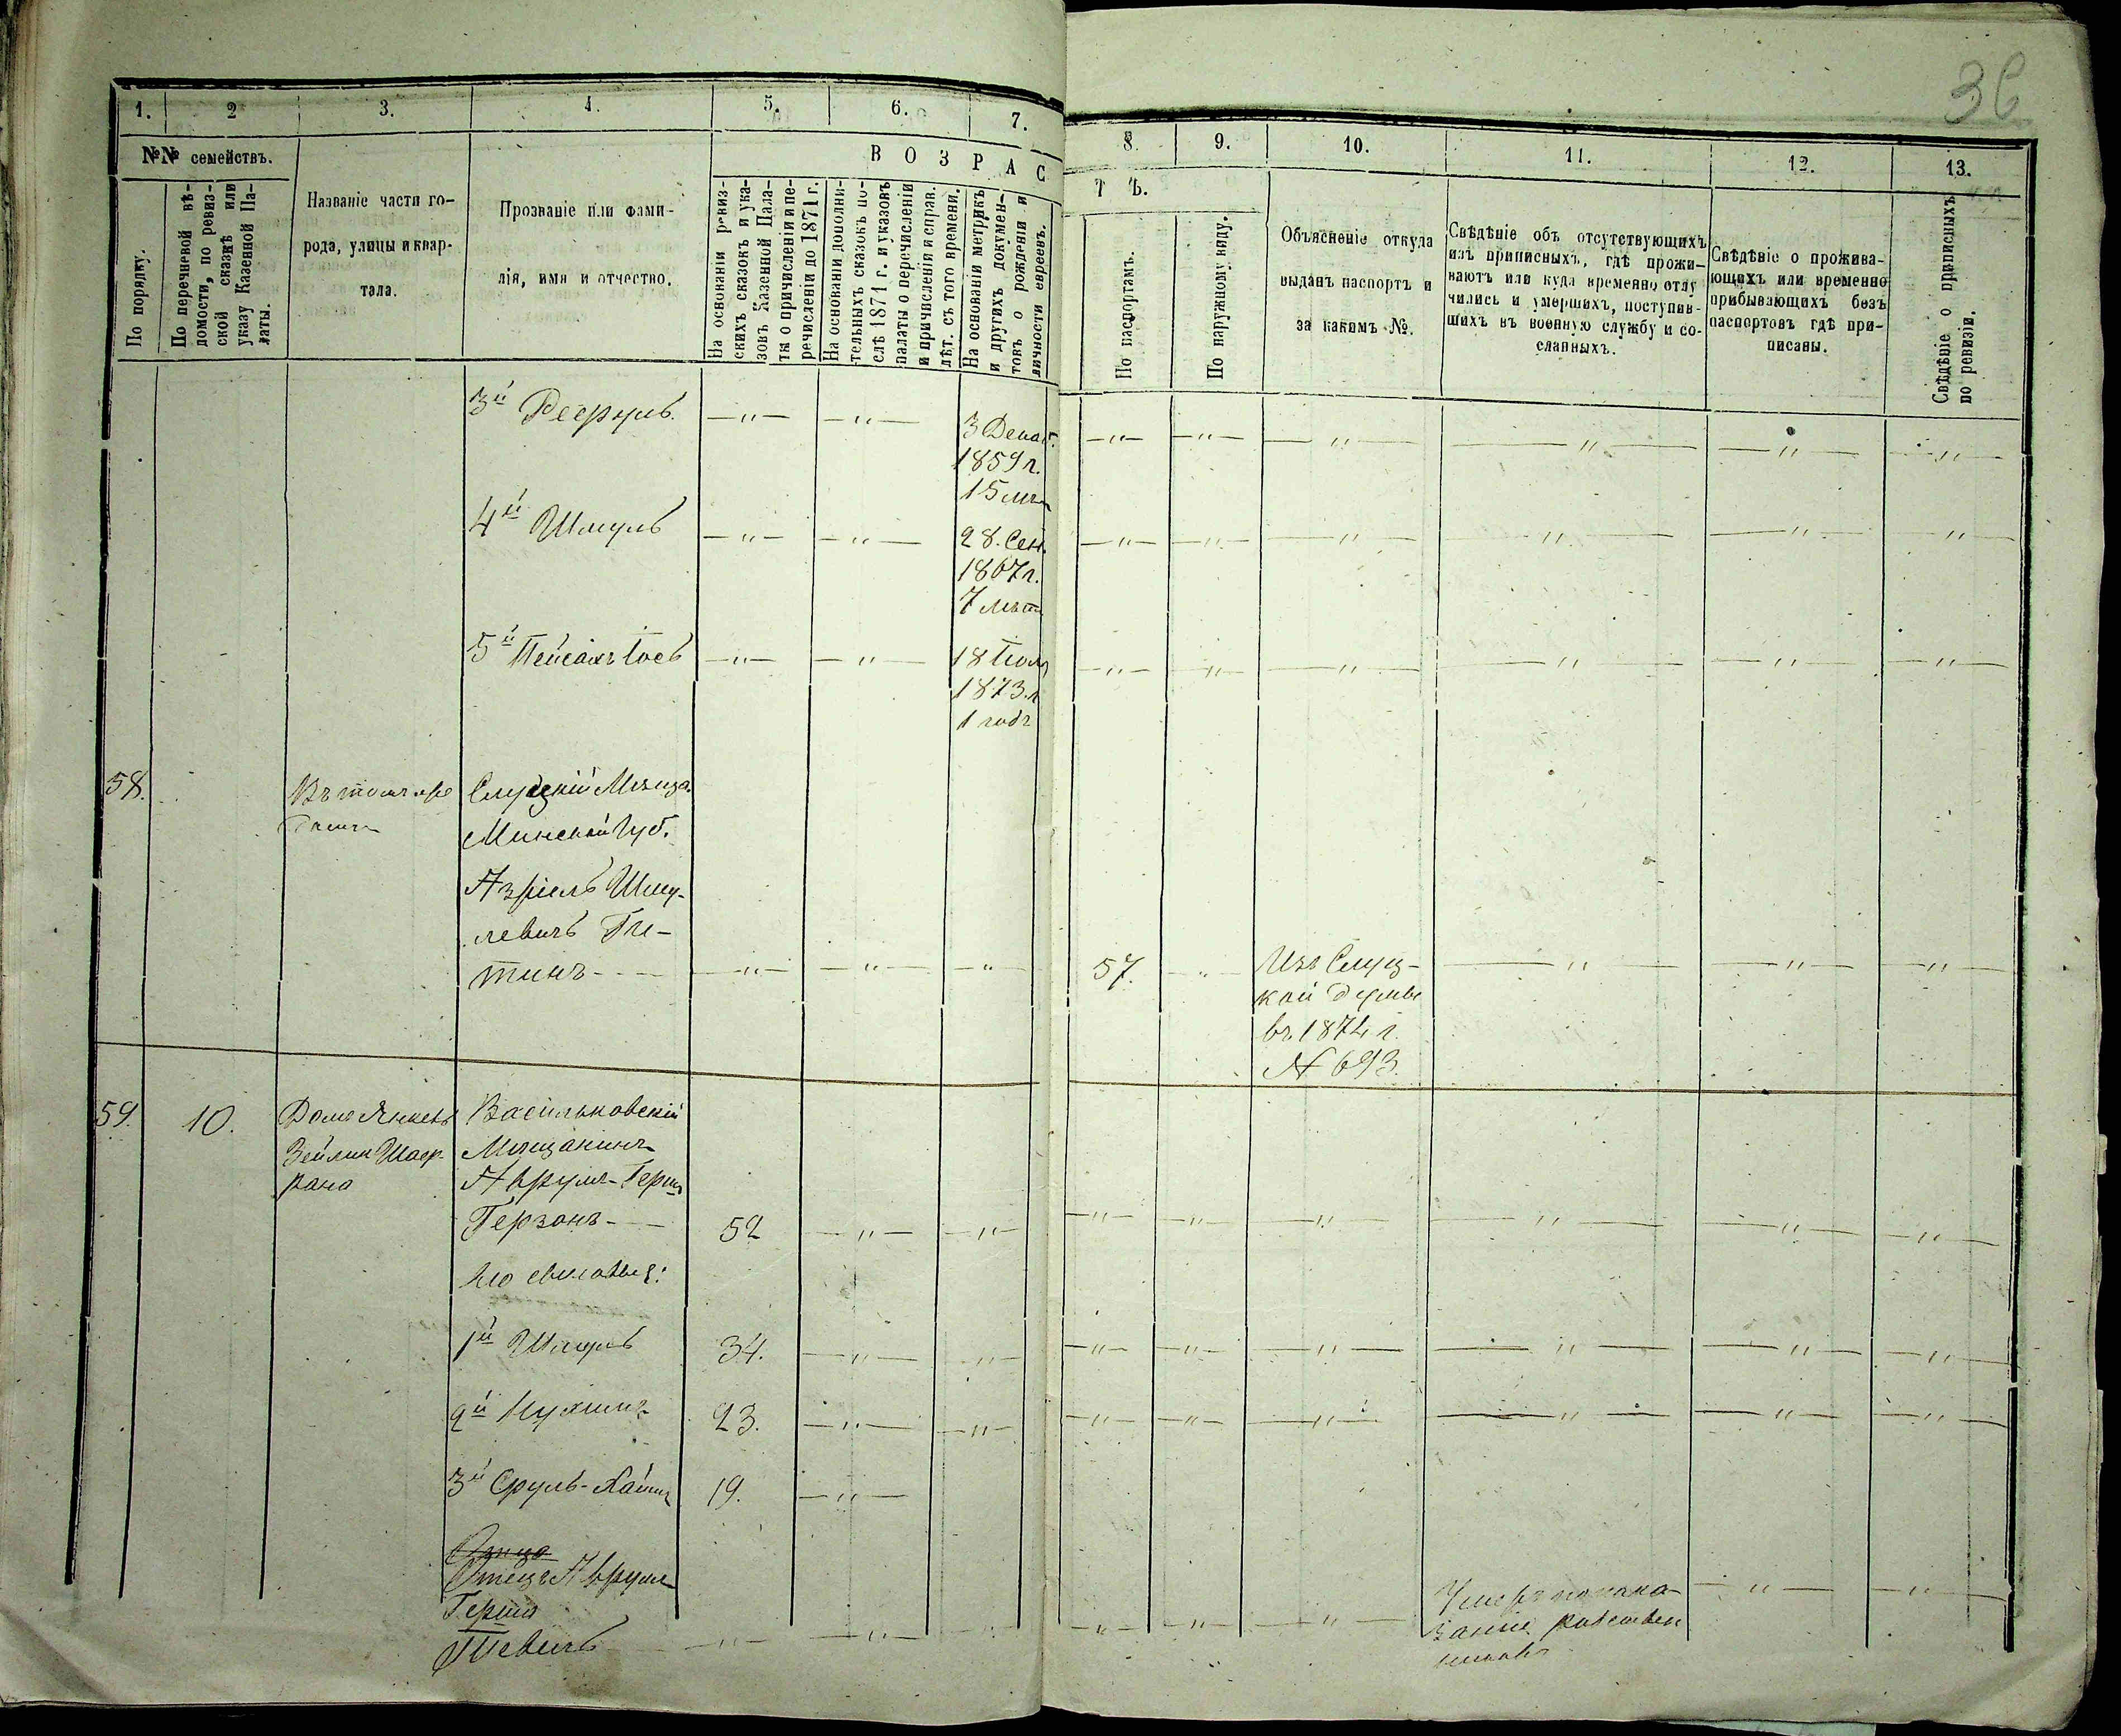 36
1. 2 3. 4. 5. 6. 7. 8. 9. 10. 11. 12. 13.
№№ семействъ.
В О З Р А С Т Ъ.
По порядку.
По перечневой вѣ-
домости, по ревиз-
ской сказкѣ или
указу Казенной Па-
латы.
Названіе части го-
рода, улицы и квар-
тала.
Прозваніе или фами-
лія, имя и отчество.
На основаніи ревиз-
скихъ сказокъ и ука-
зовъ Казенной Пала-
ты о причисленіи и пе-
речисленіи до 1871 г.
На основаніи дополни-
тельныхъ сказокъ по-
слѣ 1871 г. и указовъ
палаты о перечисленіи
и причисленіи и справ.
лѣт. съ того времени.
На основаніи метрикъ
и другихъ докумен-
товъ о рожденіи и
личности евреевъ.
По паспортамъ.
По наружному виду.
Объясненіе откуда
выданъ паспортъ и
за какимъ №.
Свѣдѣніе объ отсутствующихъ
изъ приписныхъ, гдѣ прожи-
ваютъ или куда временно отлу
чились и умершихъ, поступив-
шихъ въ военную службу и со-
сланныхъ.
Свѣдѣніе о прожива-
ющихъ или временно
прибывающихъ безъ
паспортовъ гдѣ при-
писаны.
Свѣдѣніе о приписныхъ
по ревизіи.
3й —"— —"— 3 Декаб. —"— —"— —"— —"— —"— —"—
1859 г.
15 лѣт
4й Шмуль —"— —"— 28. Сен. —"— —"— —"— —"— —"— —"—
1867 г.
7 лѣтъ
5й Пейсахъ Іось —"— —"— 18 Іюля —"— —"— —"— —"— —"— —"—
1873 г.
1 годъ
58. Въ томъ же Слуцкій Мѣща.
домѣ Минской Губ.
Азріель Шму-
левичъ
тинъ - - —"— —"— " 57. " Изъ Слуц- —"— —"— —"—
кой думы
въ 1874 г.
№ 693.
59. 10. Домъ Янкель Васильковскій
Зейлик Мѣщанинъ
Аврумъ-Герш
Герзонъ - — 52 —"— —"— —"— —"— —"— —"— —"— —"—
Его сыновья:
1й Шмуль 34. —"— —"— —"— —"— —"— —"— —"— —"—
2й Нухимъ 23. —"— —"— —"— —"— —"— —"— —"— —"—
3й Сруль-Хаимъ 19. —"—
Отца
Отецъ Аврума
Герша Умеръ по пока- —"— —"—
—"— —"— —"— —"— —"— —"— занію родствен
никовъ